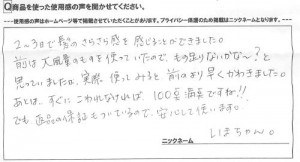 Q商品を使った使用感の声を聞かせてください。
使用感の声はホームページ等で掲載させていただくことがあります。プライバシー保護のため掲載はニックネームとなります。
2〜3日で髪のさらさら感を感じることができました。
前は大風量のものを使っていたので、もの足りないかな〜?と
思っていましたが、実際、使いみると前のより早くかわきました。
あとは、すぐにこわれなければ、100点満点ですね!!
でも返品の保証もついているので、安心して使います。
ニックネーム
いまちゃん。